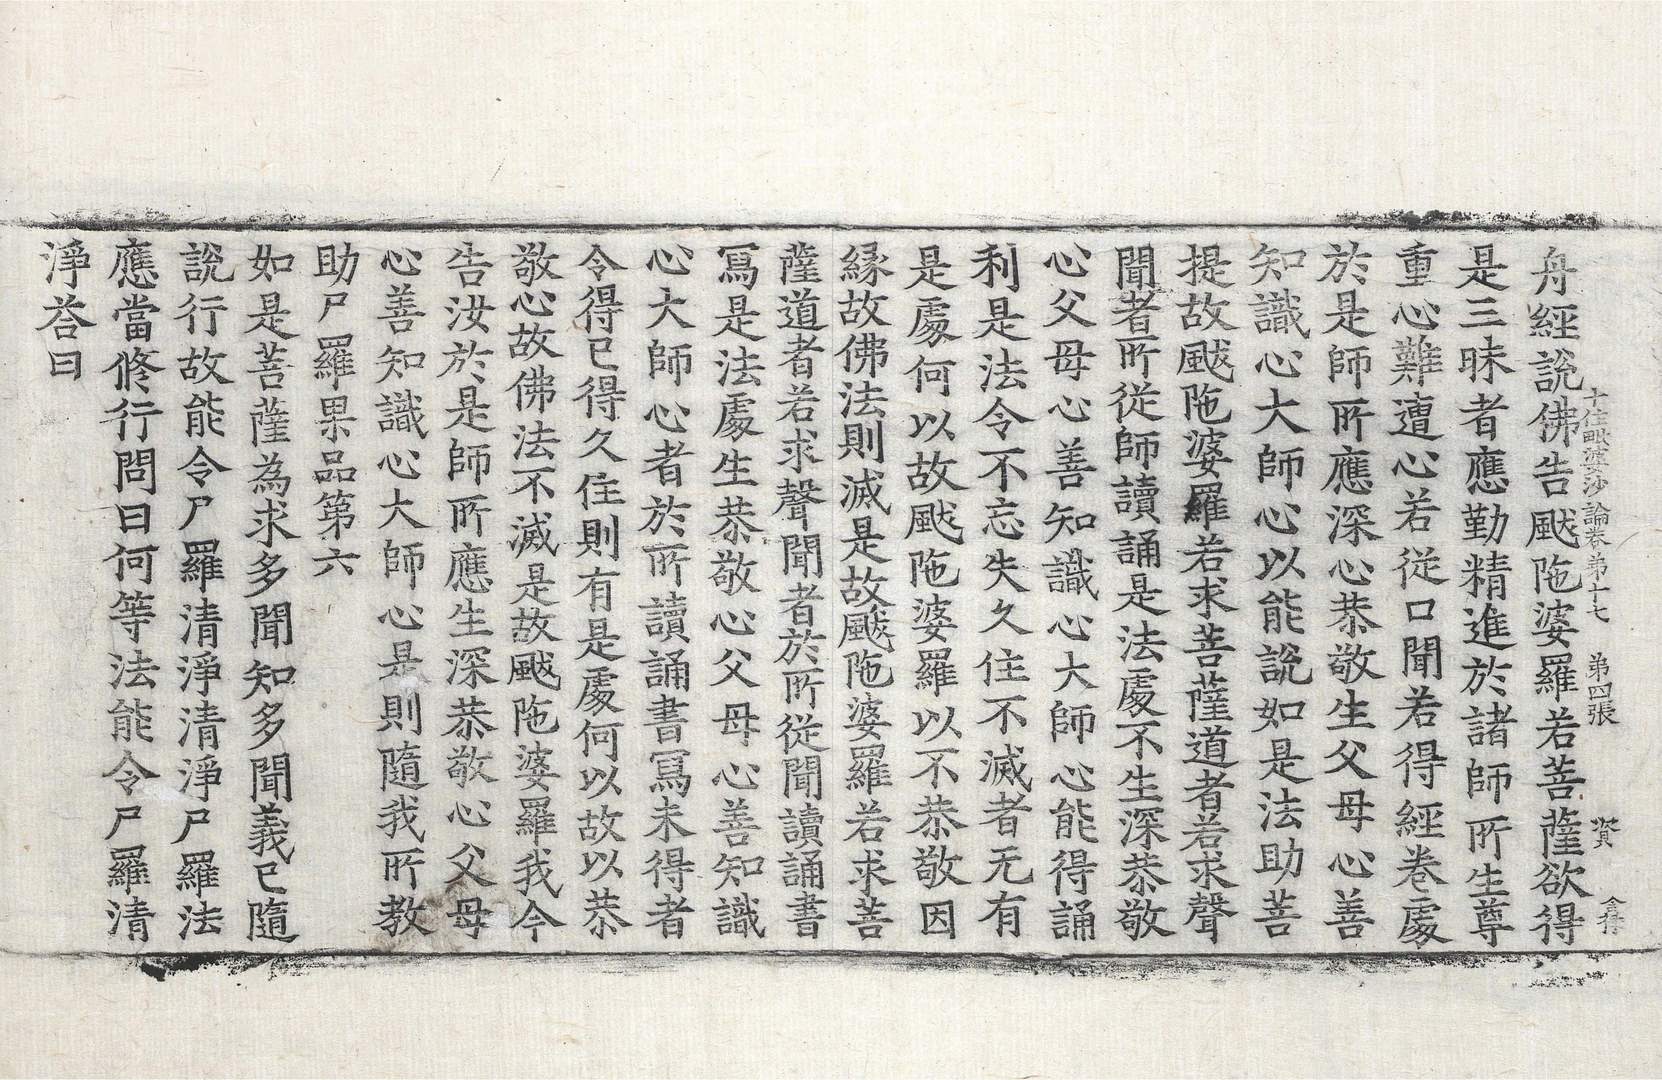 十住毗婆沙論卷苐十七 苐四張 賛
舟經說佛告颰陁婆羅若菩薩欲得
是三昧者應勤精進於諸師所生尊
重心難遭心若從口聞若得經卷處
於是師所應深心恭敬生父母心善
知識心大師心以能說如是法助菩
提故颰陁婆羅若求菩薩道者若求聲
聞者所從師讀誦是法處不生深恭敬
心父母心善知識心大師心能得誦
利是法令不忘失久住不滅者无有
是處何以故颰陁婆羅以不恭敬因
緣故佛法則滅是故颰陁婆羅若求菩
薩道者若求聲聞者於所從聞讀誦書
冩是法處生恭敬心父母心善知識
心大師心者於所讀誦書冩未得者
令得已得久住則有是處何以故以恭
敬心故佛法不滅是故颰陁婆羅我今
告汝於是師所應生深恭敬心父母
心善知識心大師心是則隨我所教
助尸羅果品第六
如是菩薩為求多聞知多聞義已隨
說行故能令尸羅清淨清淨尸羅法
應當修行問曰何等法能令尸羅清
淨荅曰